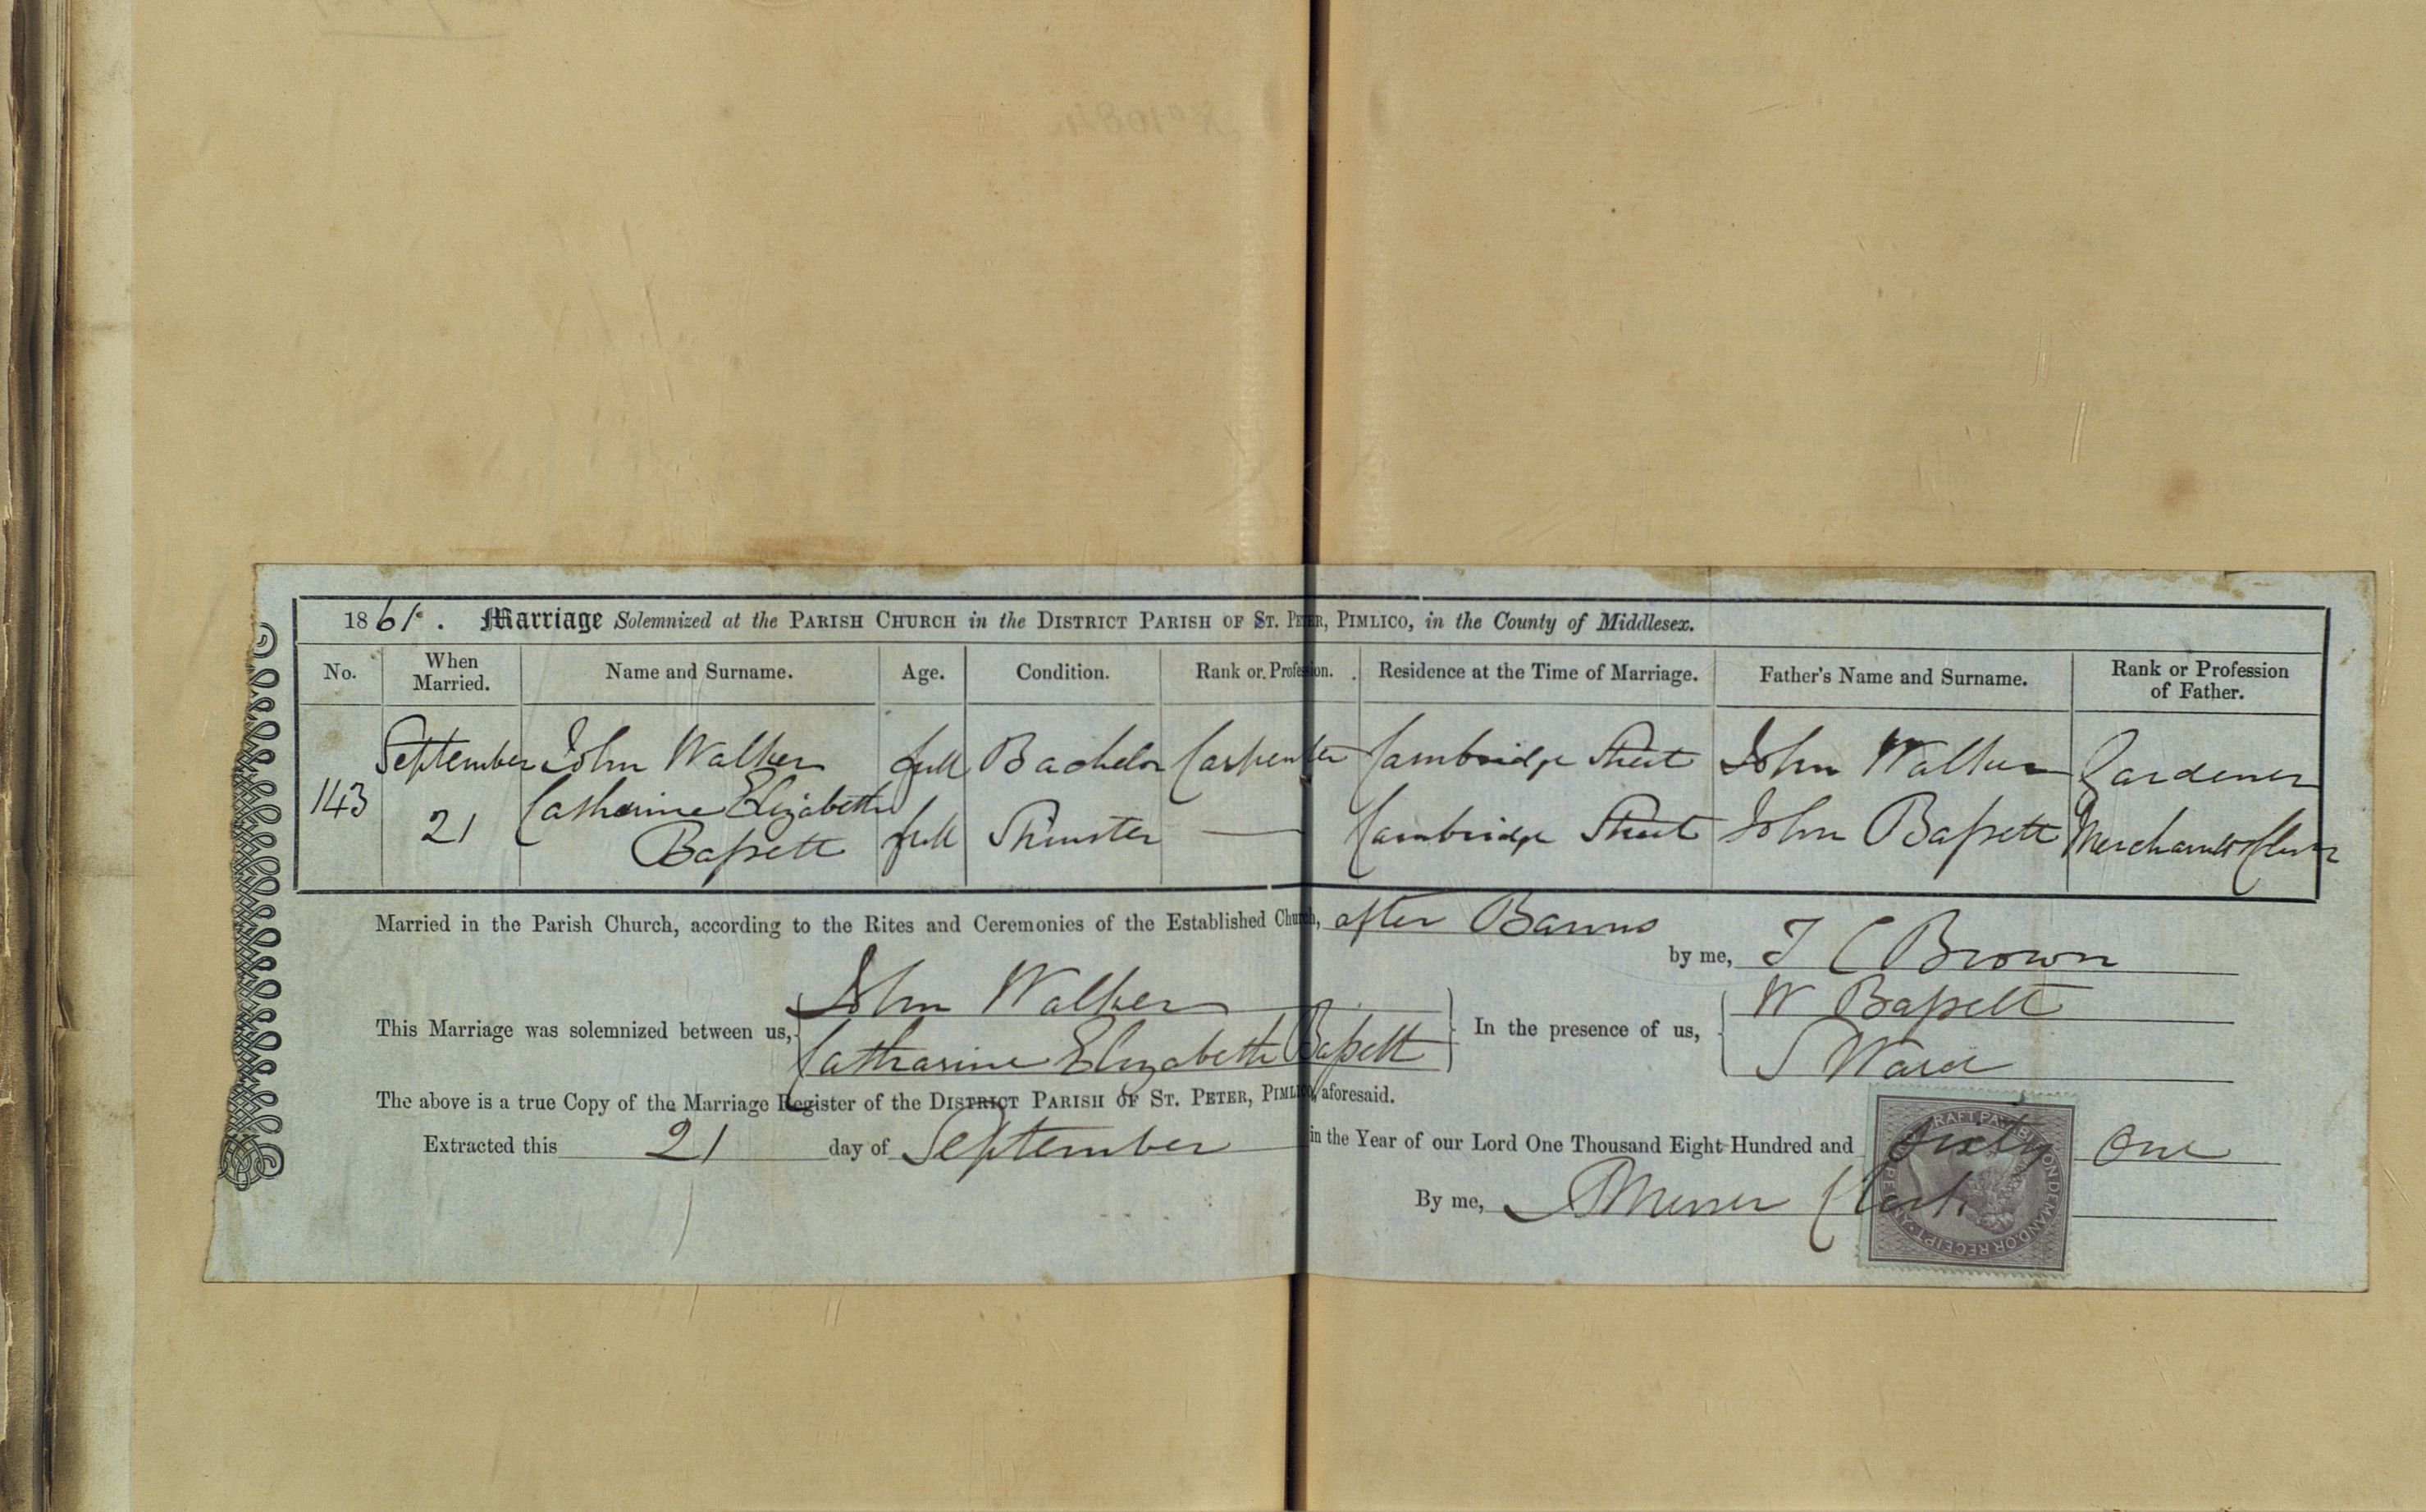 1861. Marriage Solemnized at the PARISH CHURCH in the DISTRICT PARISH OF ST. PETER, PIMLICO, in the County of Middlesex.
No. When Married. Name and Surname. Age. Condition. Rank or Profession. Residence at the Time of Marriage. Father's Name and Surname. Rank or Profession of Father.
143 September 21 John Walker full Bachelor Carpenter Cambridge Street John Walker Gardener
Catharine Elizabeth Bassett full Spinster — Cambridge Street John Bassett Merchants Clerk
Married in the Parish Church, according to the Rites and Ceremonies of the Established Church, after Banns
by me, J C Brown
This Marriage was solemnized between us, John Walker Catharine Elizabeth Bassett In the presence of us, W Bassett S Ward
The above is a true Copy of the Marriage Register of the DISTRICT PARISH OF ST. PETER, PIMLICO, aforesaid.
Extracted this 21 day of September in the Year of our Lord One Thousand Eight Hundred and Sixty One
By me, Clerk
DRAFT PAYABLE ON DEMAND OR RECEIPT PENNY